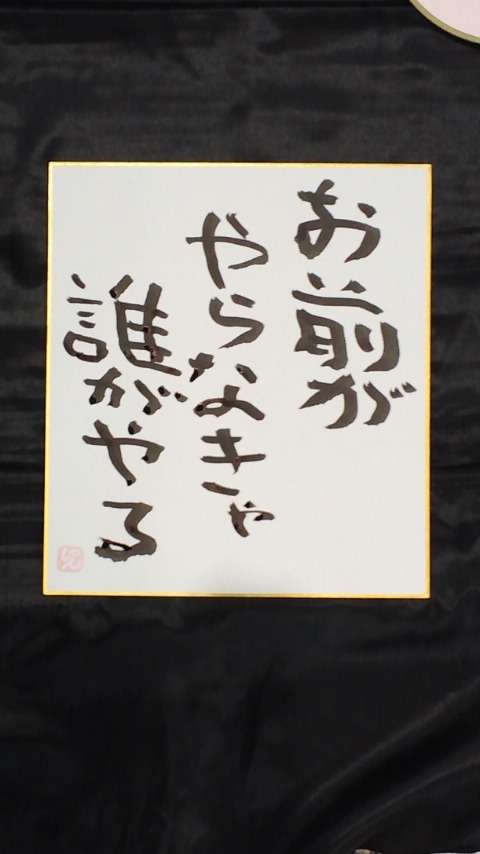 お前が
やらなきゃ
誰がやる